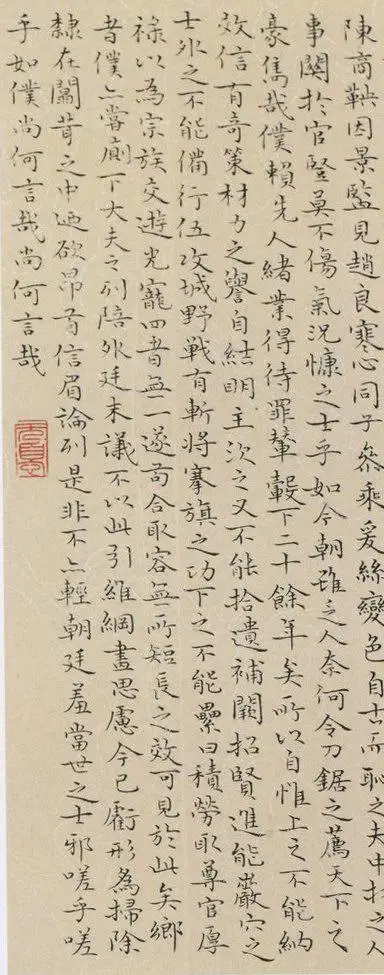 陳商鞅因景監見趙良寒心同子參乘爰絲變色自古而恥之夫中材之人
事關於宦豎莫不傷氣況慷之士乎如今朝雖乏人奈何令刀鋸之薦天下之
豪雋哉僕賴先人緒業得待罪輦轂下二十餘年矣所以自惟上之不能納
效信有奇策材力之譽自結明主次之又不能拾遺補闕招賢進能巖穴之
士外之不能備行伍攻城野戰有斬將搴旗之功下之不能纍日積勞取尊官厚
祿以為宗族交遊光寵四者無一遂苟合取容無所短長之效可見於此矣鄉
者僕亦嘗廁下大夫之列陪外廷末議不以此引維綱盡思慮今已虧形為掃除
隸在闒茸之中迺欲昂首信眉論列是非不亦輕朝廷羞當世之士邪嗟乎嗟
乎如僕尚何言哉尚何言哉